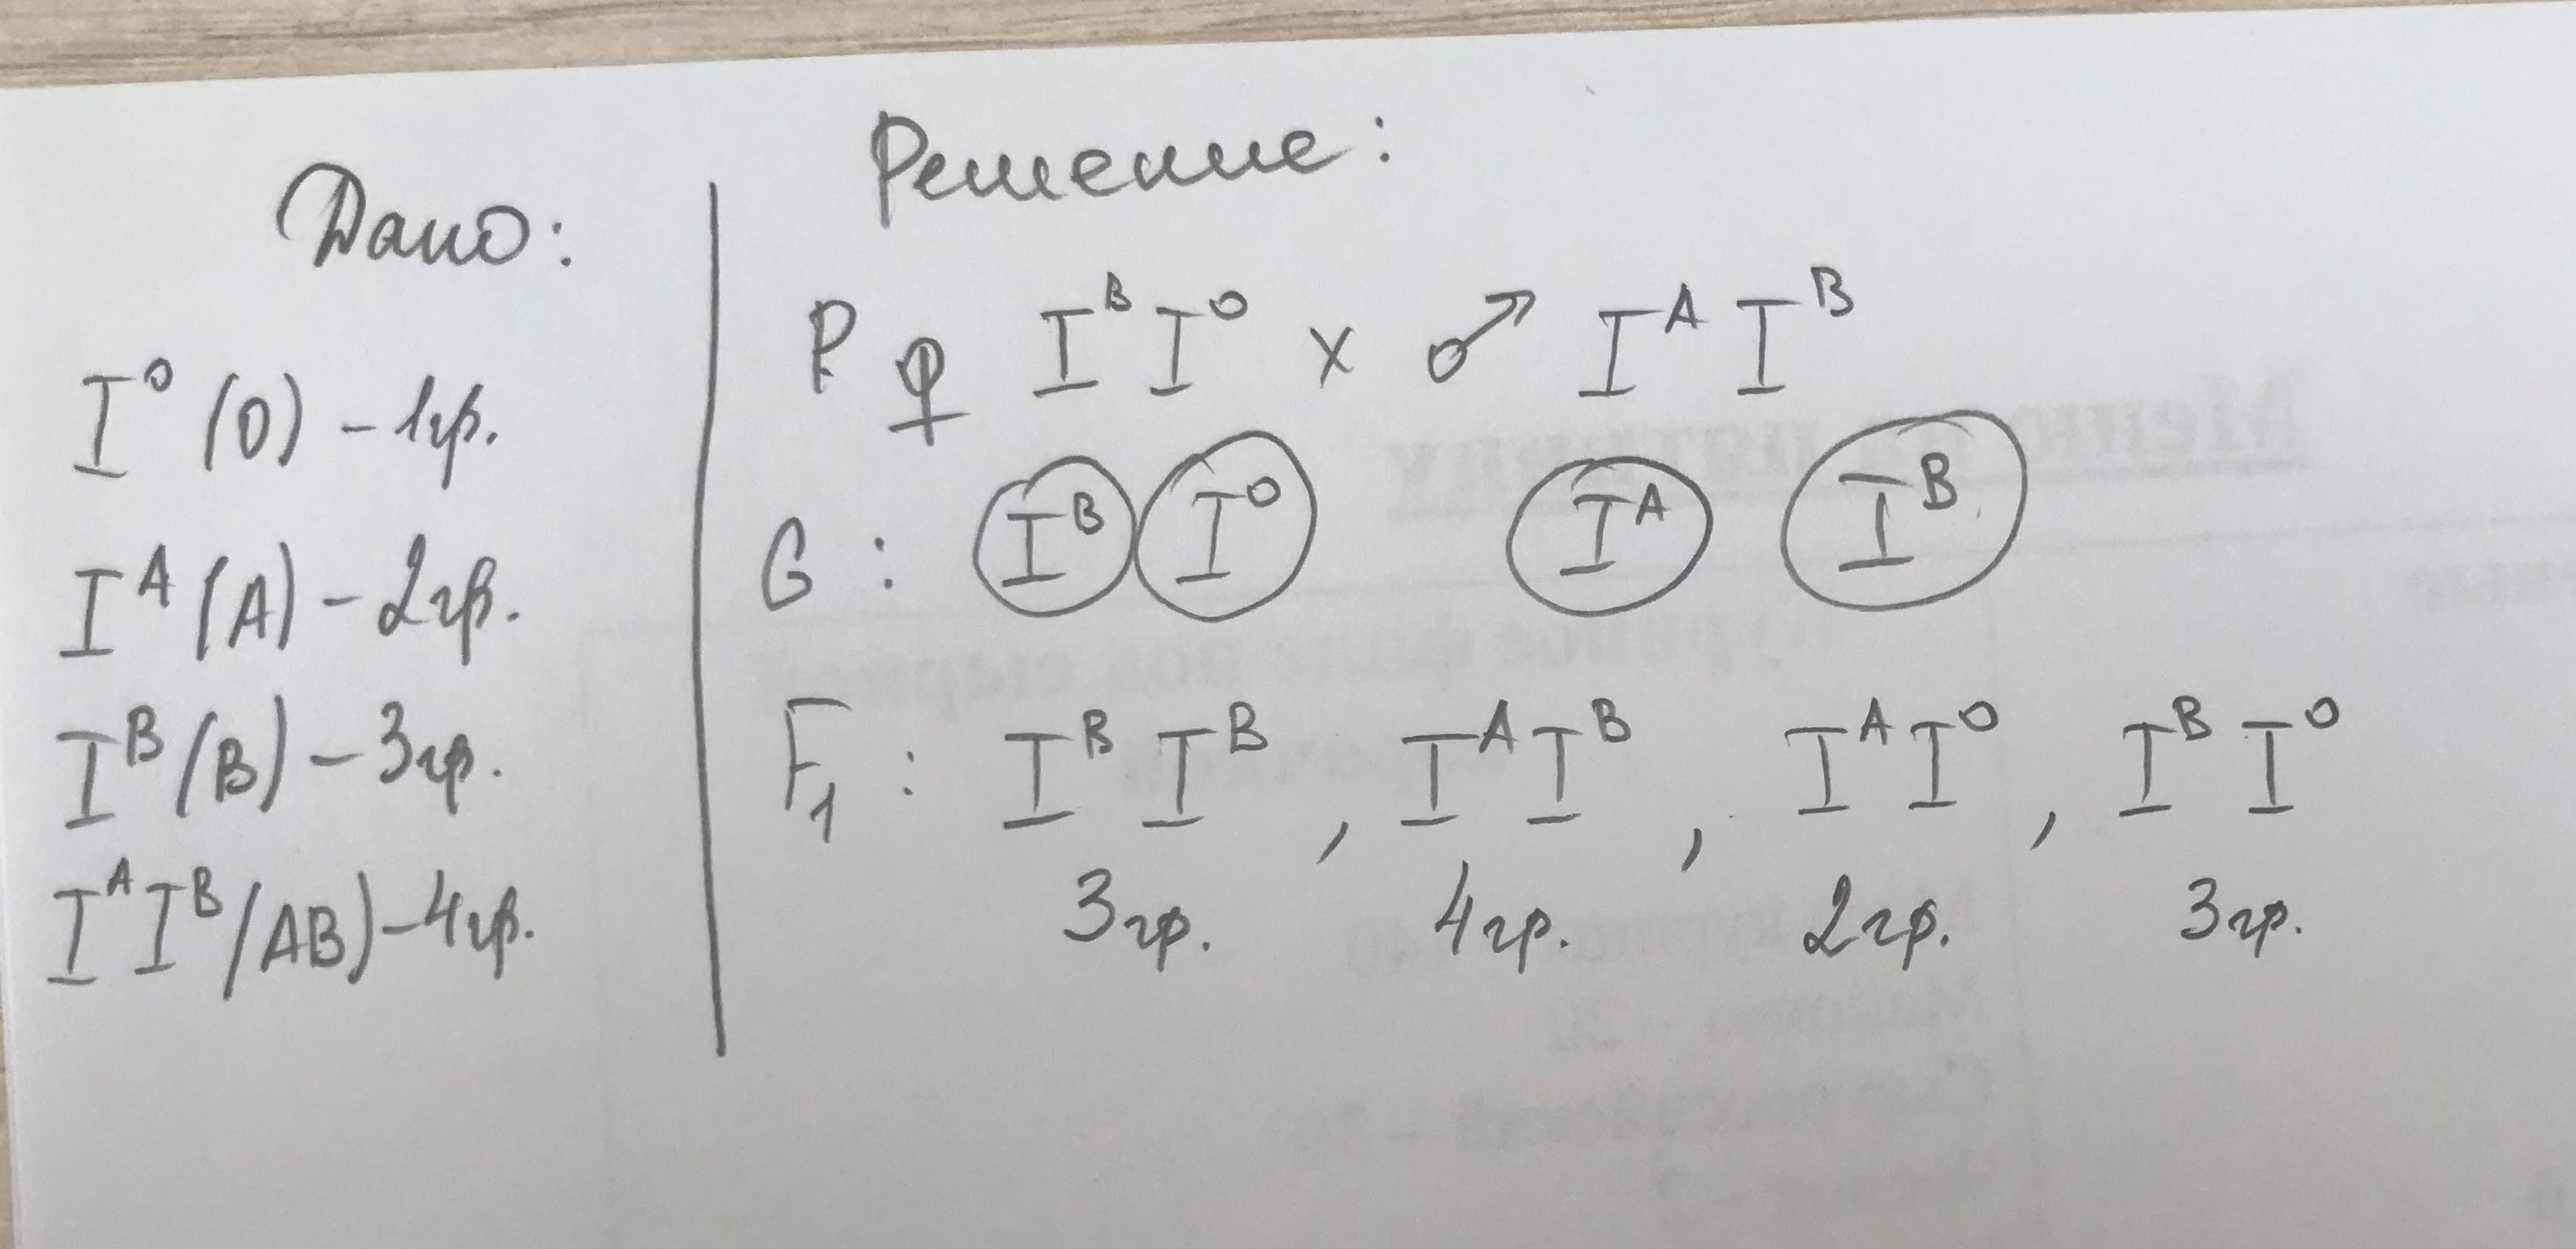 Дано:
I⁰ (0) – 1гр.
Iᴬ (A) – 2гр.
Iᴮ (B) – 3гр.
Iᴬ Iᴮ (AB) – 4гр.
Решение:
P ♀ Iᴮ I⁰ x ♂ Iᴬ Iᴮ
G : Iᴮ I⁰ Iᴬ Iᴮ
F₁ : Iᴮ Iᴮ , Iᴬ Iᴮ , Iᴬ I⁰ , Iᴮ I⁰
3гр. 4гр. 2гр. 3гр.
Меню
куриное филе под